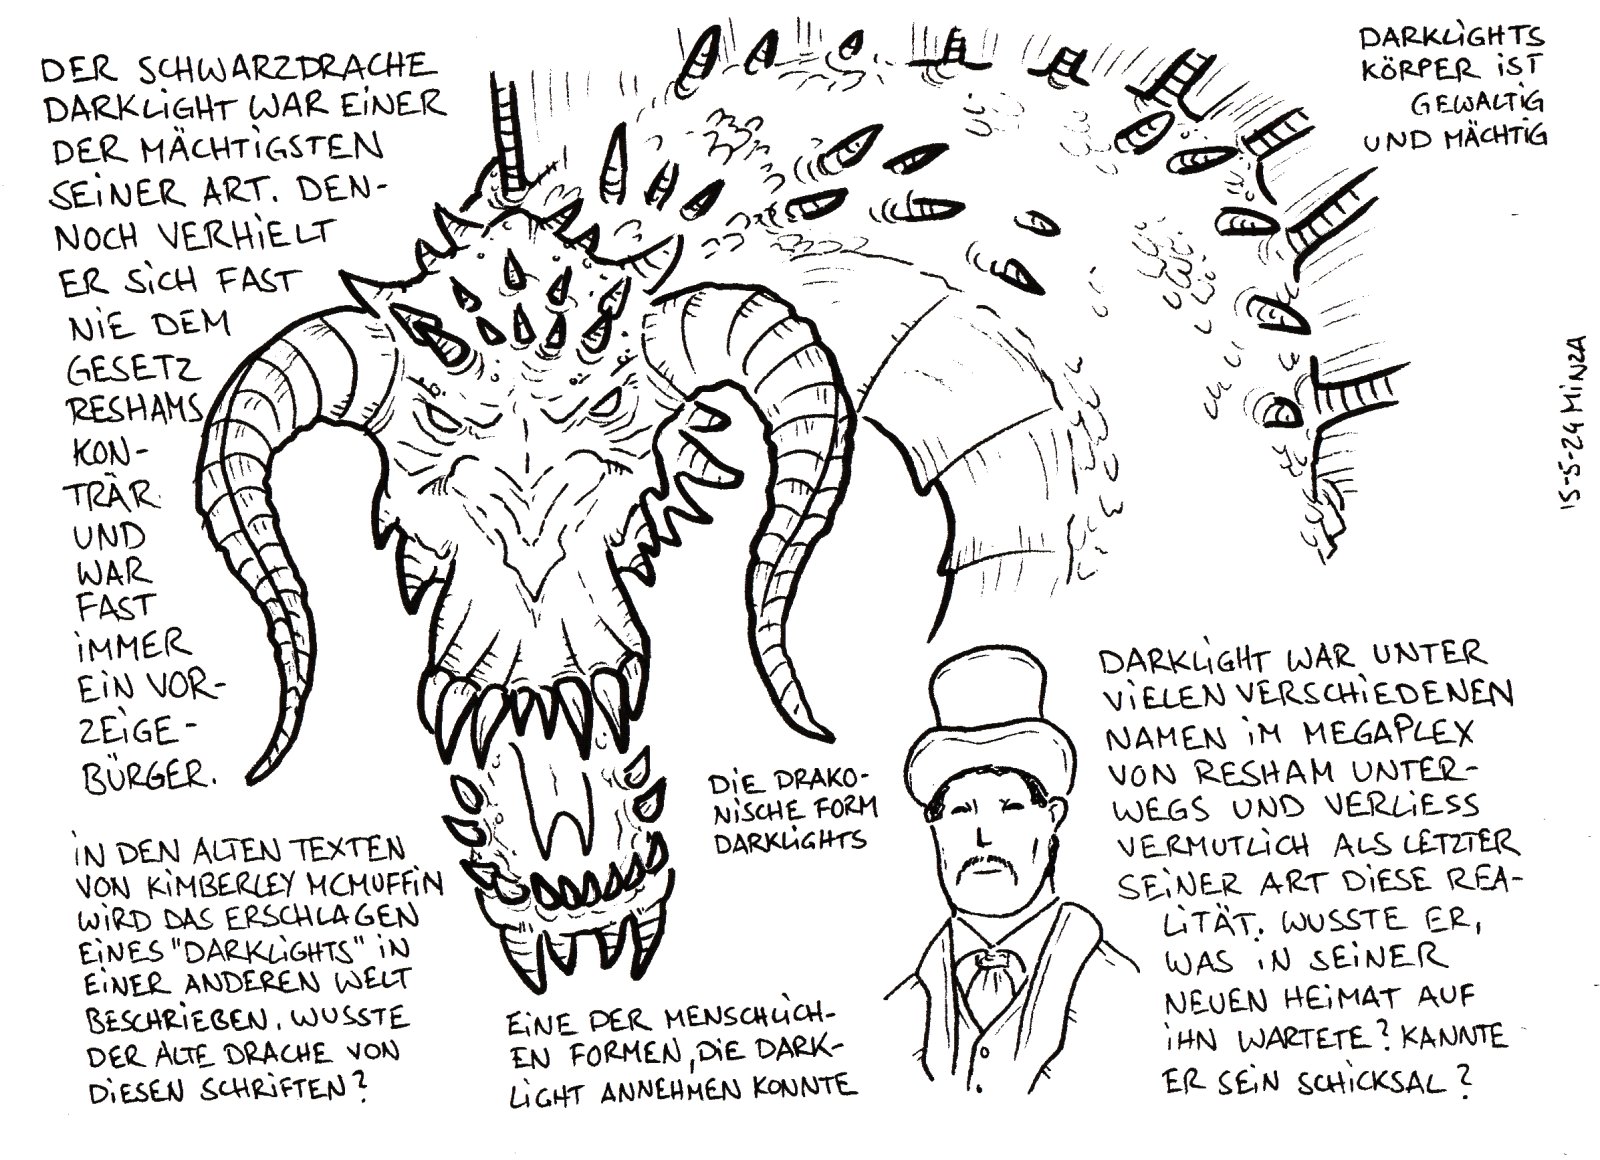 DER SCHWARZDRACHE
DARKLIGHT WAR EINER
DER MÄCHTIGSTEN
SEINER ART. DEN-
NOCH VERHIELT
ER SICH FAST
NIE DEM
GESETZ
RESHAMS
KON-
TRÄR
UND
WAR
FAST
IMMER
EIN VOR-
ZEIGE-
BÜRGER.
IN DEN ALTEN TEXTEN
VON KIMBERLEY MCMUFFIN
WIRD DAS ERSCHLAGEN
EINES "DARKLIGHTS" IN
EINER ANDEREN WELT
BESCHRIEBEN. WUSSTE
DER ALTE DRACHE VON
DIESEN SCHRIFTEN?
DARKLIGHTS
KÖRPER IST
GEWALTIG
UND MÄCHTIG
15-5-24 MINZA
DIE DRAKO-
NISCHE FORM
DARKLIGHTS
EINE DER MENSCHLICH-
EN FORMEN, DIE DARK-
LIGHT ANNEHMEN KONNTE
DARKLIGHT WAR UNTER
VIELEN VERSCHIEDENEN
NAMEN IM MEGAPLEX
VON RESHAM UNTER-
WEGS UND VERLIESS
VERMUTLICH ALS LETZTER
SEINER ART DIESE REA-
LITÄT. WUSSTE ER,
WAS IN SEINER
NEUEN HEIMAT AUF
IHN WARTETE? KANNTE
ER SEIN SCHICKSAL?